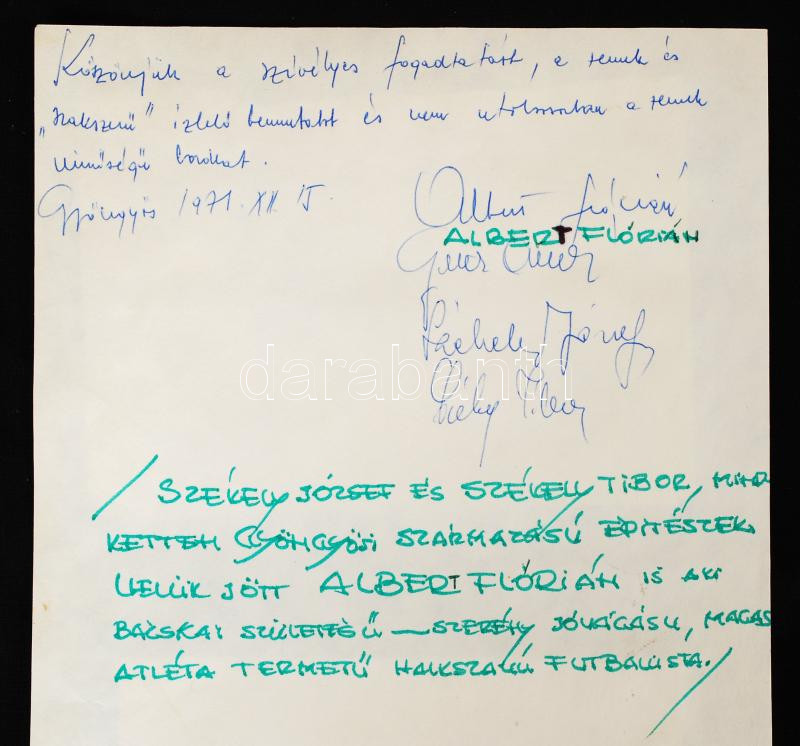 Köszönjük a szívélyes fogadtatást, a remek és
„szakszerű” ízlelő bemutatót és nem utolsósorban a remek
minőségű borokat.
Gyöngyös 1971. XII. 15.
Albert Flórián
ALBERT FLÓRIÁN
Székely József
Székely Tibor
darabanth
/ SZÉKELY JÓZSEF ÉS SZÉKELY TIBOR, MIND
KETTEN GYÖNGYÖSI SZÁRMAZÁSÚ ÉPITÉSZEK.
VELÜK JÖTT ALBERT FLÓRIÁN IS AKI
BÁCSKAI SZÜLETÉSŰ — SZERÉNY JÓVÁGÁSU, MAGAS
ATLÉTA TERMETŰ HALKSZAVÚ FUTBALISTA. /